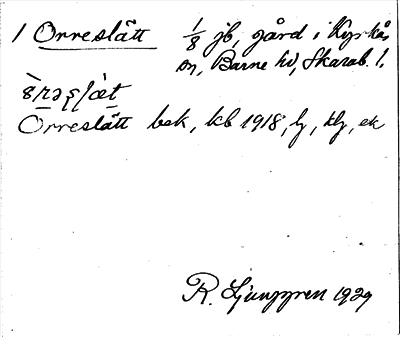 1 Orreslätt 1/8 jb, gård i Kyrkås
sn, Barne hd, Skarab. l.
Orreslätt bsk, kb 1918, lj, hlj, ek
R. Ljunggren 1929